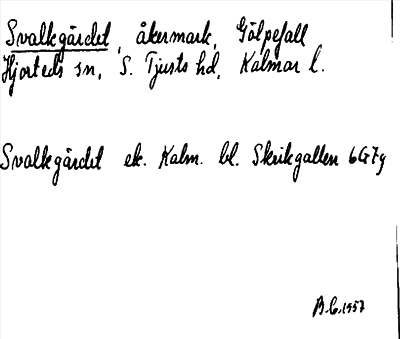 Svalkgärdet, åkermark, Gölpefall
Hjorteds sn, S. Tjusts hd, Kalmar l.
Svalkgärdet ek. Kalm. bl. Skrikgallen 6G7g
B.C. 1957